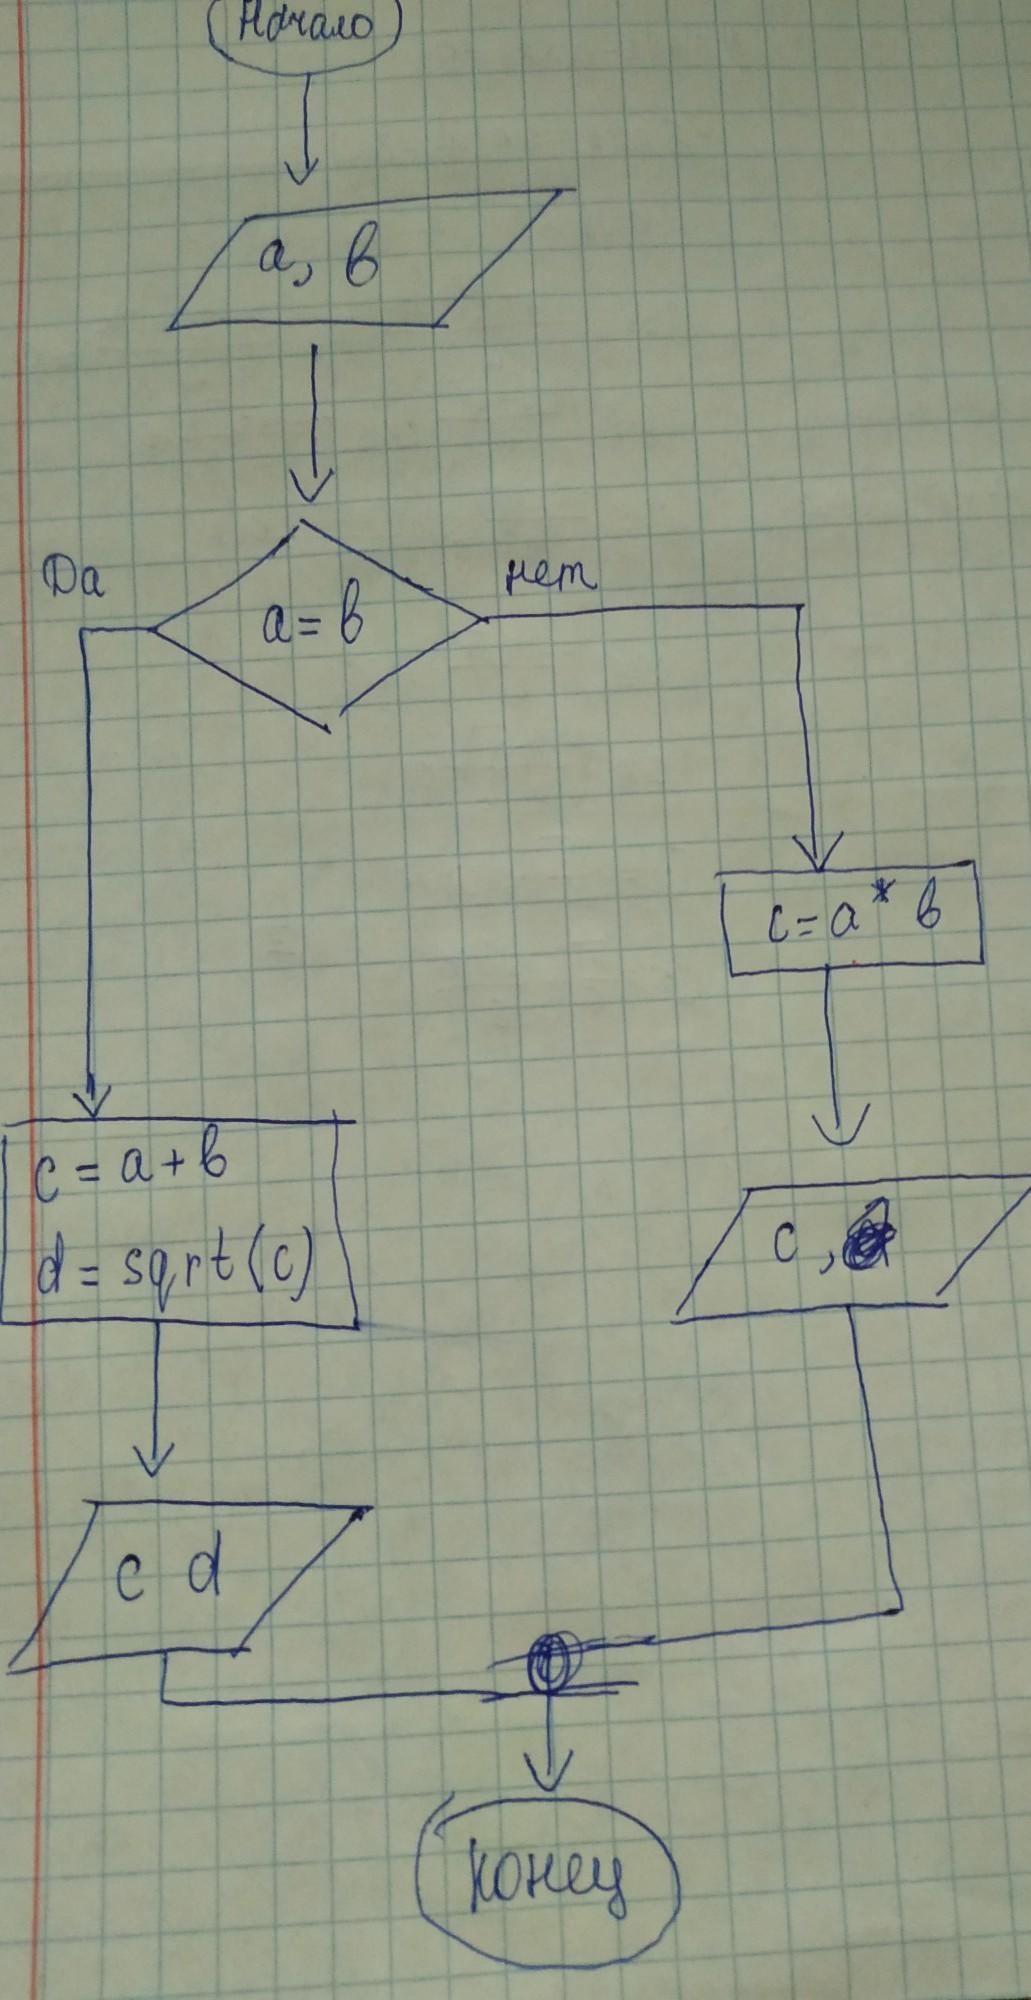 Начало
a, в
a = в
Да
нет
c = a * в
c = a + в
d = sqrt(c)
c ,
c d
конец